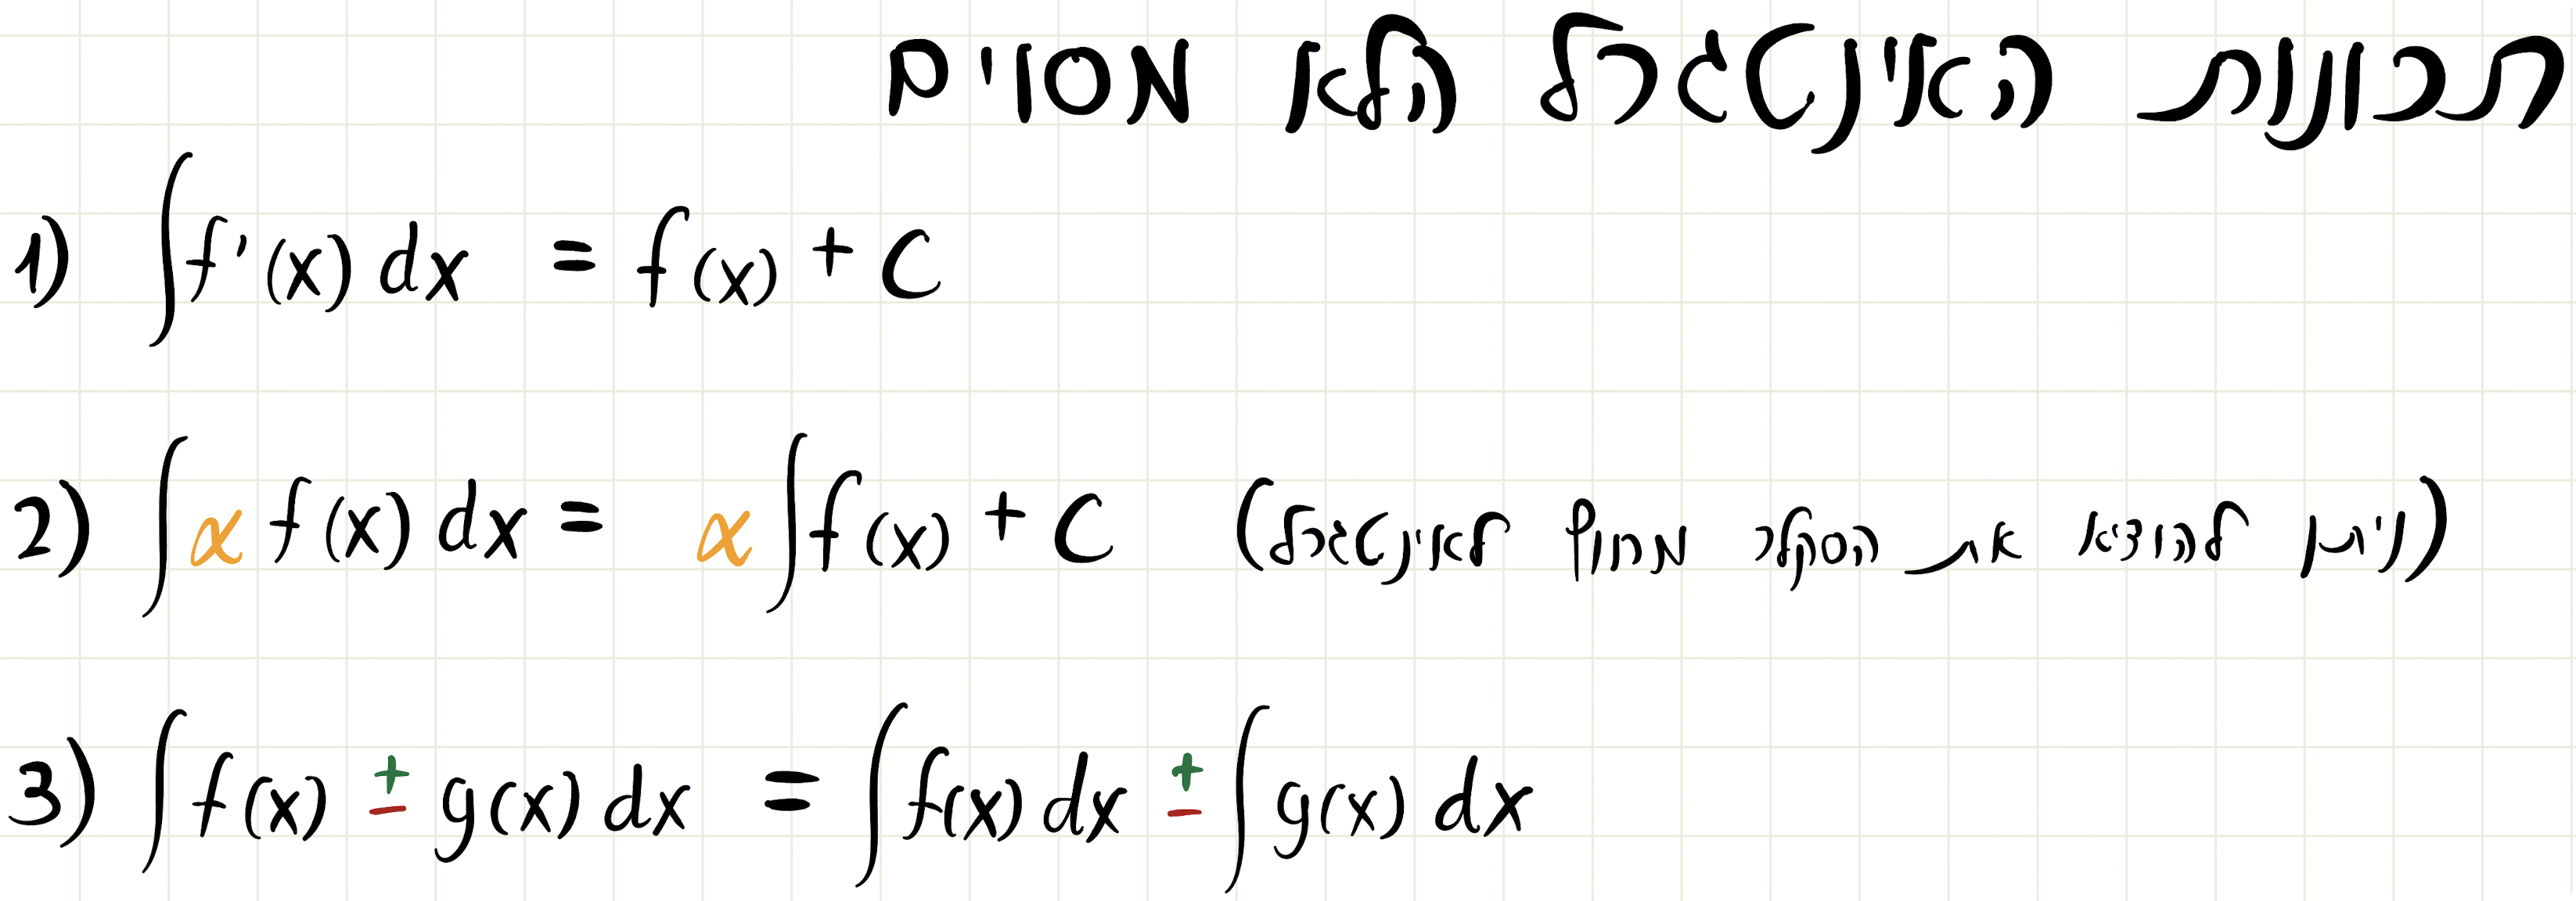 תכונות האינטגרל הלא מסוים
1) ∫f'(x) dx = f(x) + C
2) ∫α f(x) dx = α∫f(x) + C (ניתן להוציא את הסקלר מחוץ לאינטגרל)
3) ∫f(x) ± g(x) dx = ∫f(x) dx ± ∫g(x) dx